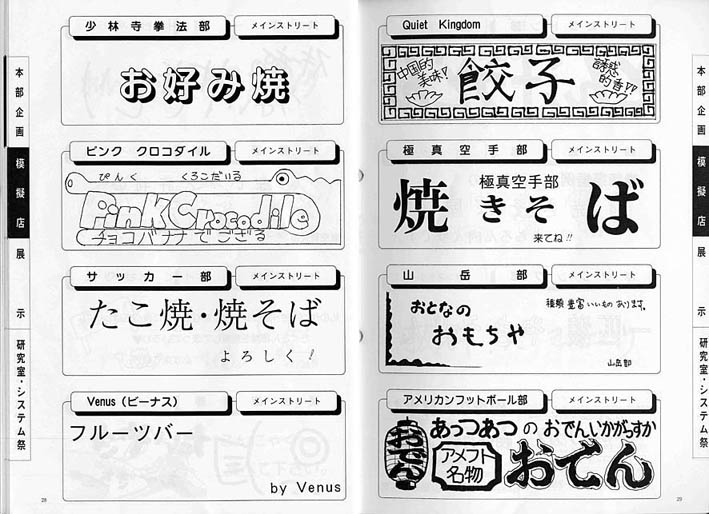 本部企画
模擬店
展示
研究室・システム祭
少林寺拳法部
メインストリート
お好み焼
ピンク クロコダイル
メインストリート
ぴんく くろこだいる
Pink Crocodile
チョコバナナでござる
サッカー部
メインストリート
たこ焼・焼そば
よろしく!
Venus(ビーナス)
メインストリート
フルーツバー
by Venus
28
Quiet Kingdom
メインストリート
中国的
美味!
餃子
的香り
極真空手部
メインストリート
極真空手部
焼きそば
来てね!!
山岳部
メインストリート
おとなの
おもちゃ
種類豊富いいものあります。
山岳部
アメリカンフットボール部
メインストリート
おでん
あっつあつのおでんいかがっすか
アメフト
名物
おでん
本部企画
模擬店
展示
研究室・システム祭
29